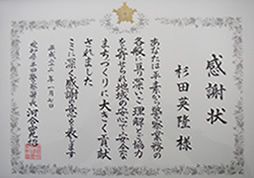 感謝状
杉田英隆 様
あなたは平素から警察業務の
各般に亘り深いご理解と協力
を寄せられ地域の安心で安全な
まちづくりに大きく貢献
されました
ここに深く感謝の意を表します
平成二三年一月七日